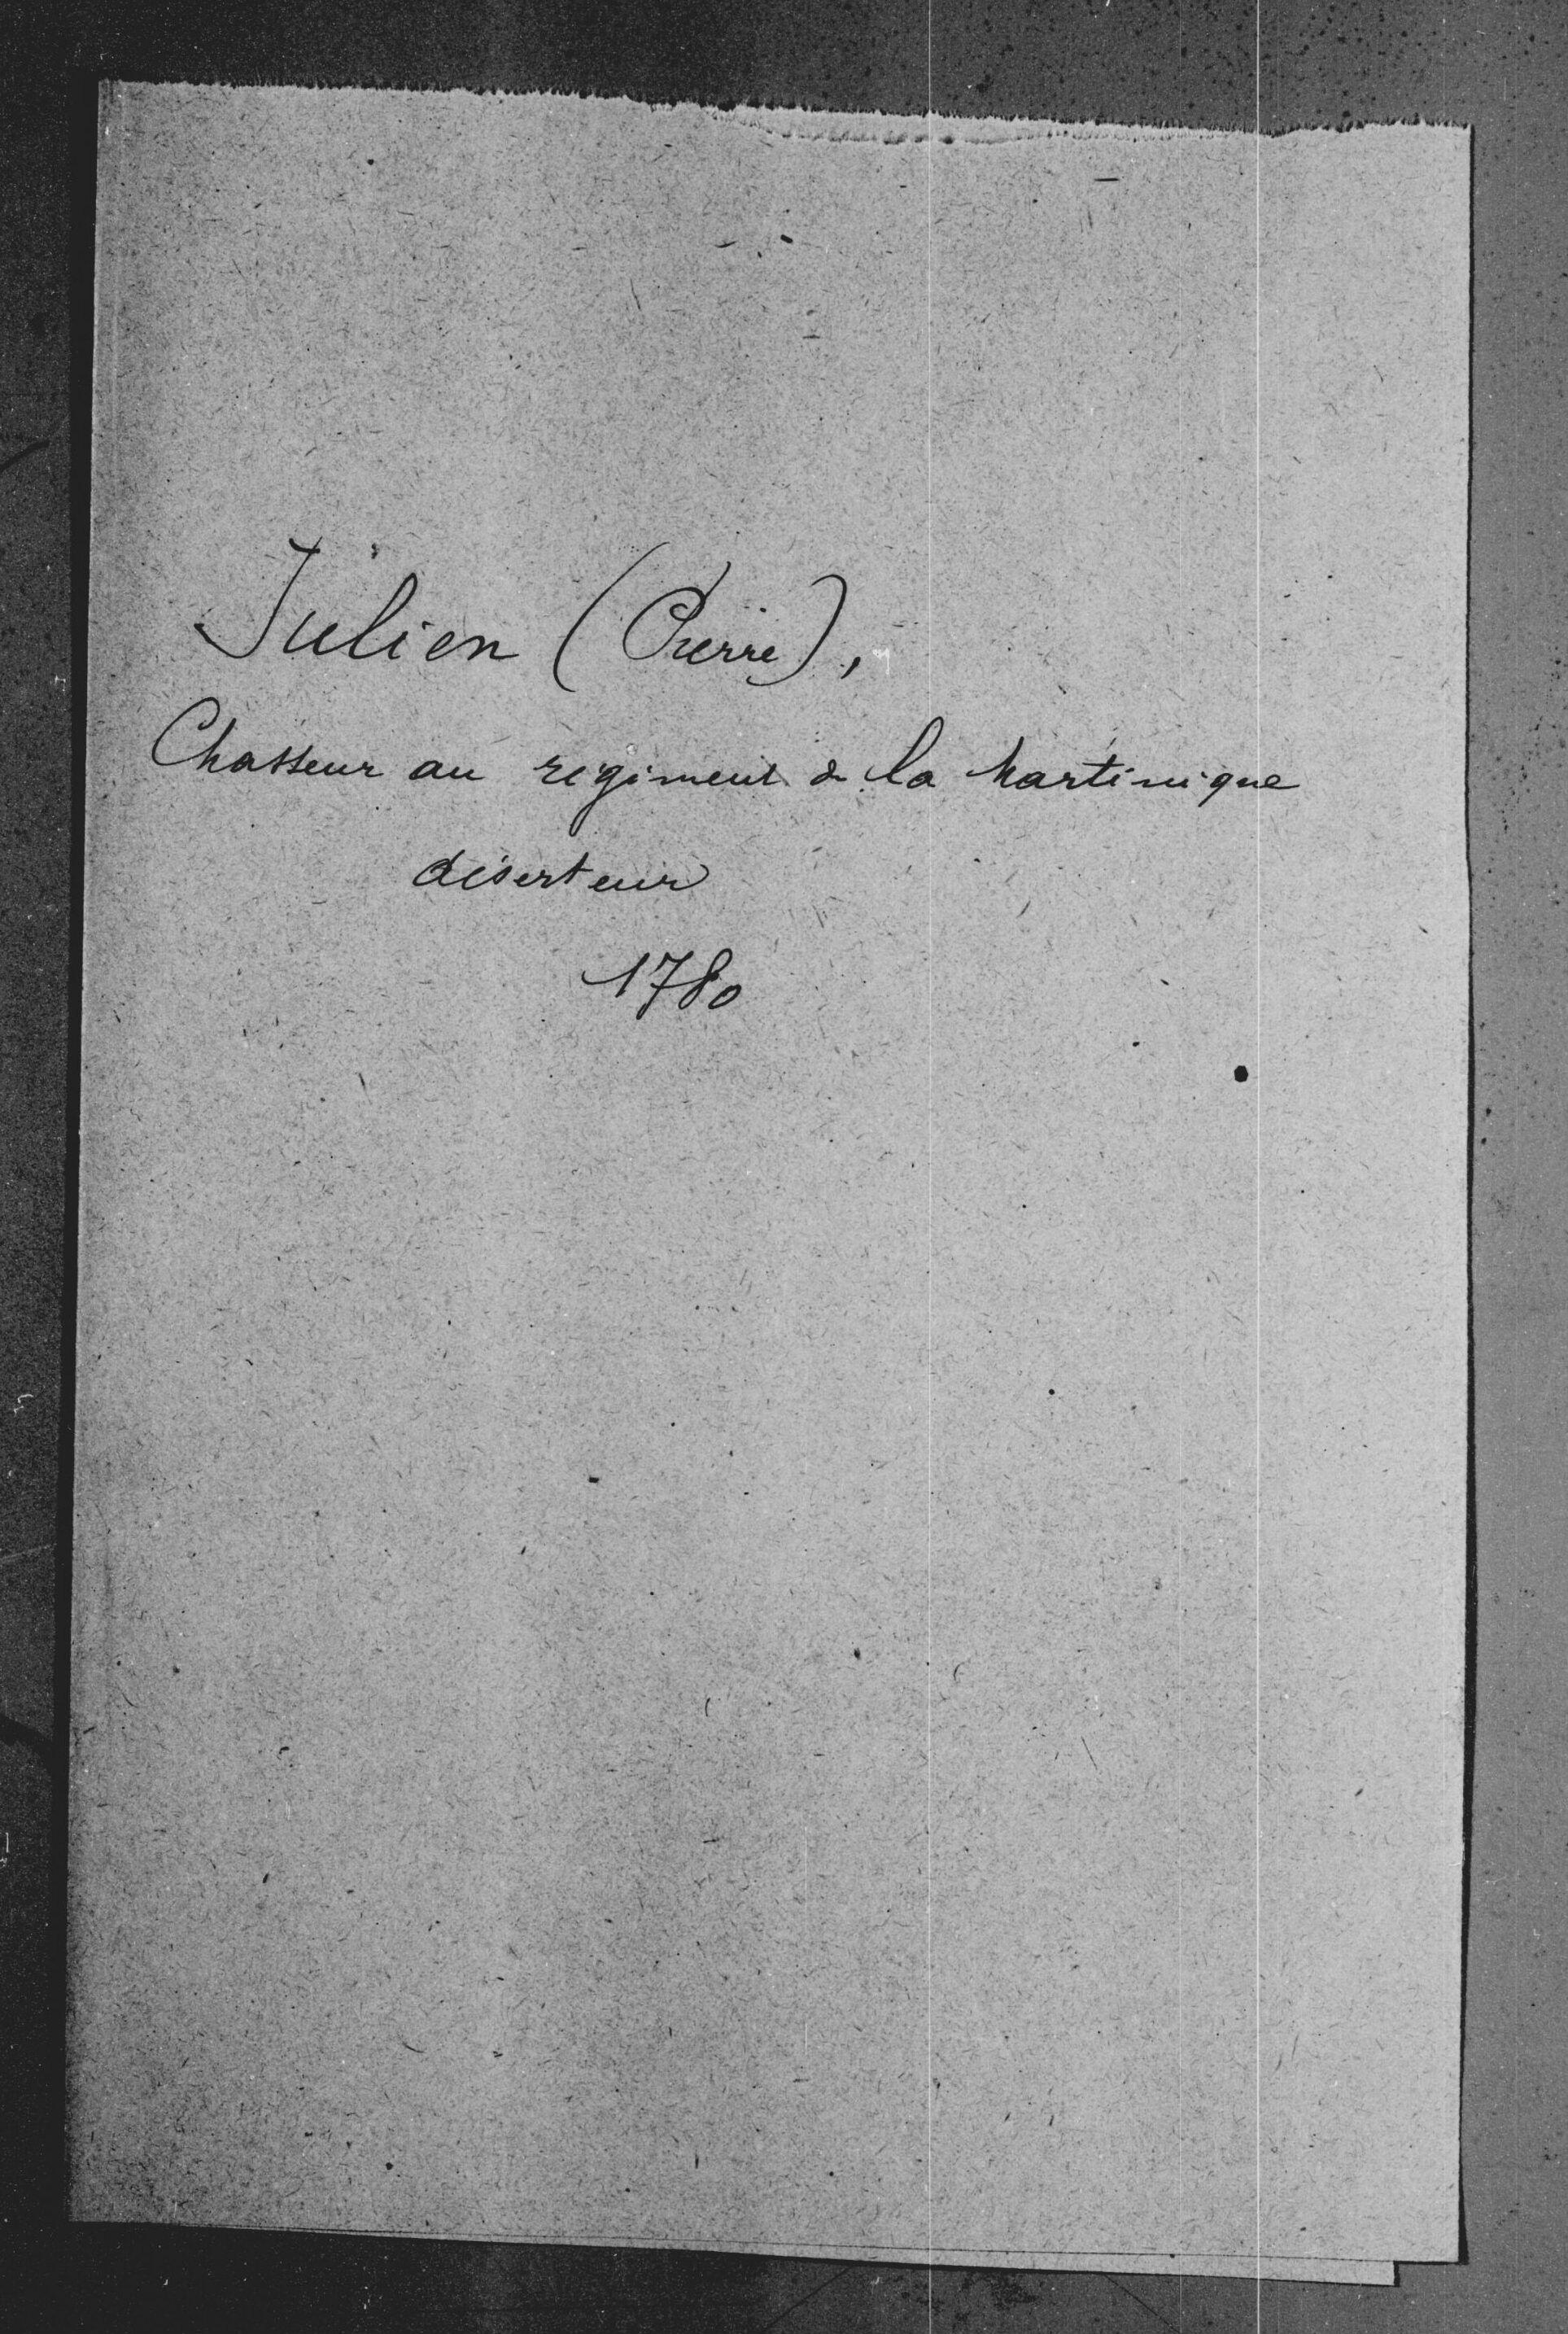 Julien (Pierre),
Chasseur au régiment de la Martinique
déserteur
1780